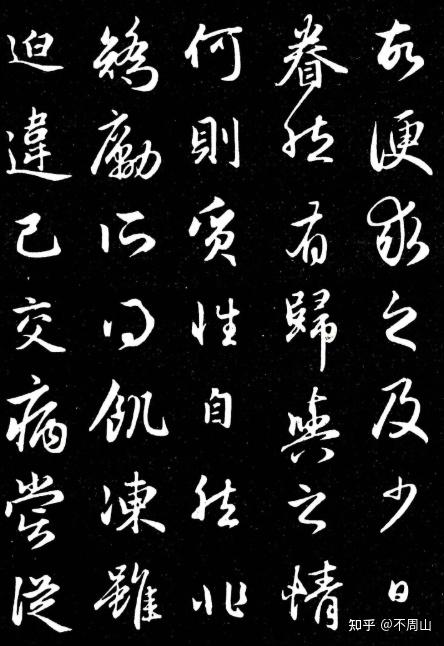 故便求之及少日
眷然有歸與之情
何則質性自然非
矯勵所得飢凍雖
迫違己交病嘗從
知乎 @不周山